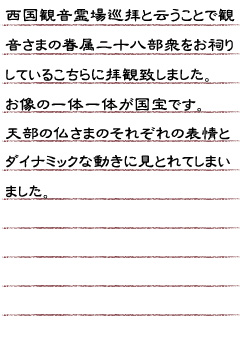 西国観音霊場巡拝と云うことで観
音さまの眷属二十八部衆をお祠り
しているこちらに拝観致しました。
お像の一体一体が国宝です。
天部の仏さまのそれぞれの表情と
ダイナミックな動きに見とれてしまい
ました。